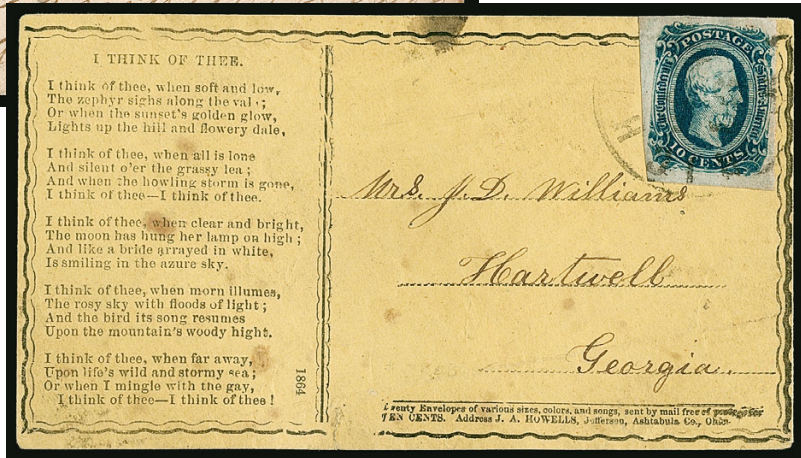 I THINK OF THEE.
I think of thee, when soft and low,
The zephyr sighs along the val ;
Or when the sunset's golden glow,
Lights up the hill and flowery dale,
I think of thee, when all is lone
And silent o'er the grassy lea ;
And when the howling storm is gone,
I think of thee—I think of thee.
I think of thee, when clear and bright,
The moon has hung her lamp on high ;
And like a bride arrayed in white,
Is smiling in the azure sky.
I think of thee, when morn illumes,
The rosy sky with floods of light ;
And the bird its song resumes
Upon the mountain's woody hight.
I think of thee, when far away,
Upon life's wild and stormy sea ;
Or when I mingle with the gay,
I think of thee—I think of thee !
1864
POSTAGE
The Confederate States of America
10 CENTS
Mrs. J. D. Williams
Hartwell
Georgia.
Twenty Envelopes of various sizes, colors, and songs, sent by mail free of postage for
TEN CENTS. Address J. A. HOWELLS, Jefferson, Ashtabula Co., Ohio.